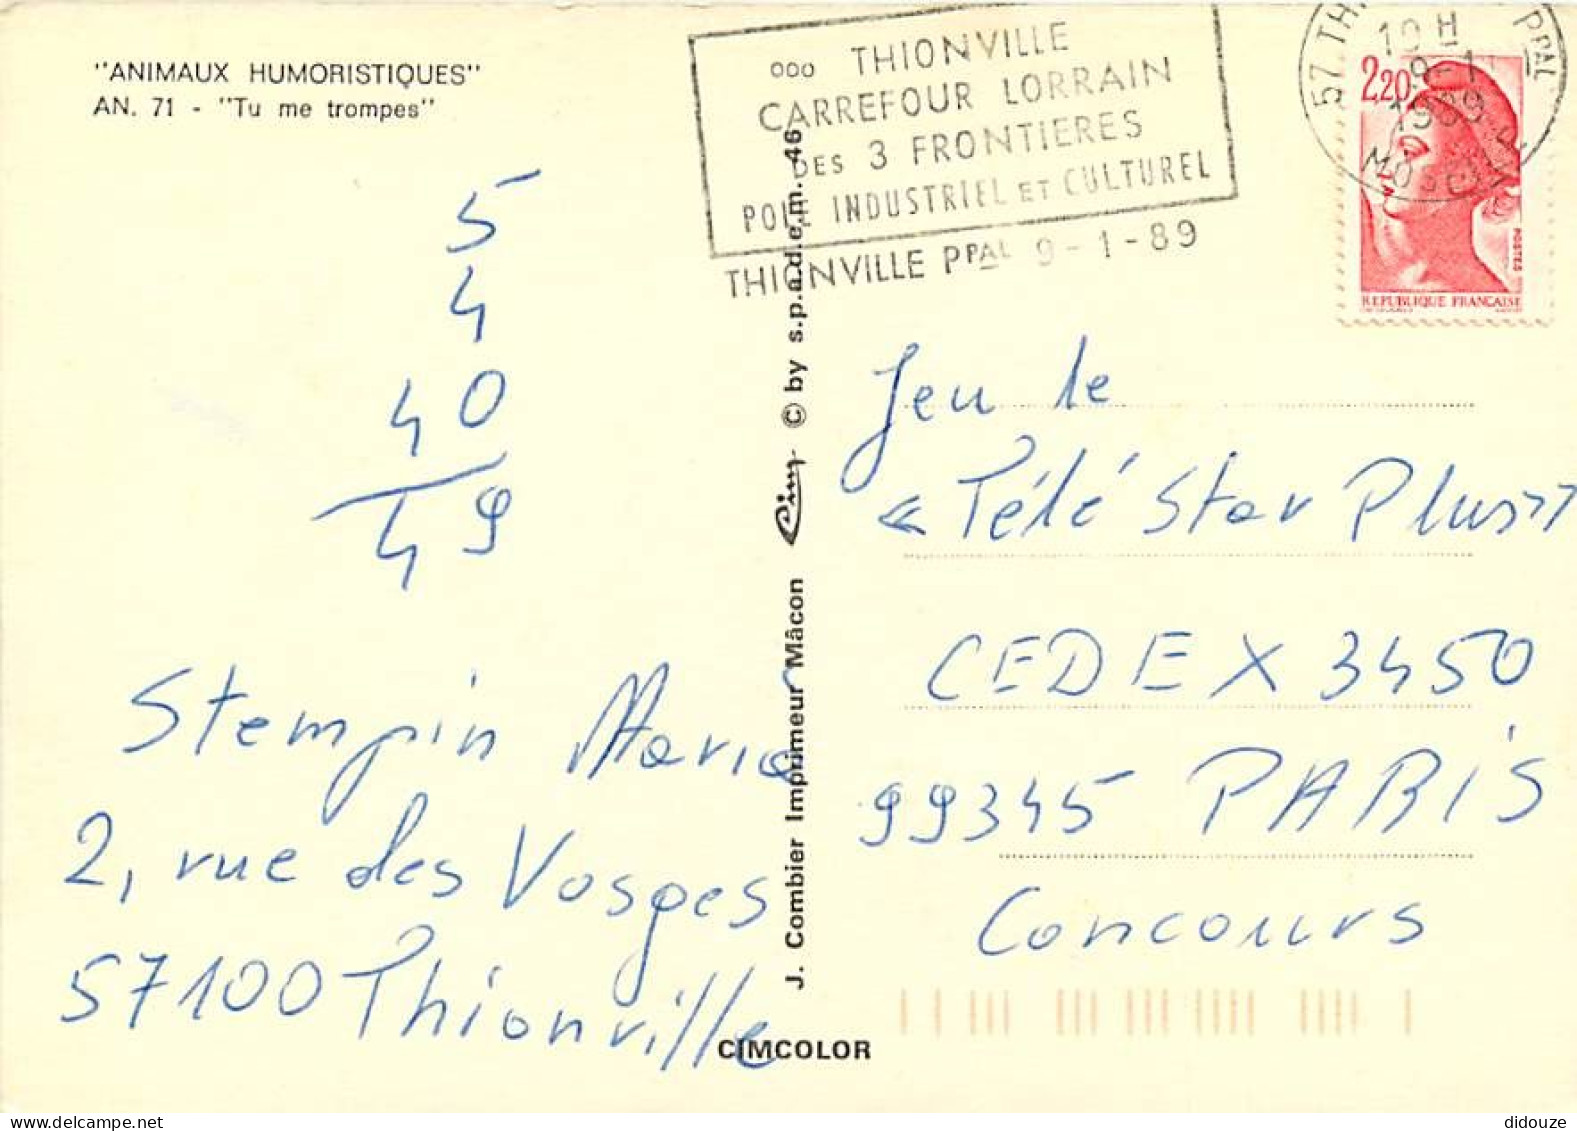 "ANIMAUX HUMORISTIQUES"
AN. 71 - "Tu me trompes"
ooo THIONVILLE
CARREFOUR LORRAIN
DES 3 FRONTIERES
POLE INDUSTRIEL ET CULTUREL
THIONVILLE PPAL 9-1-89
57 PPAL
10 H
9-1
1989
MOSELLE
2,20
POSTES
REPUBLIQUE FRANÇAISE
5
4
40
49
Stempin Maria
2, rue des Vosges
57100 Thionville
J. Combier Imprimeur Mâcon Cim © by s.p.a.d.e.m. 46
Jeu le
«Télé Star Plus»
CEDEX 3450
99345 PARIS
Concours
CIMCOLOR
didouze